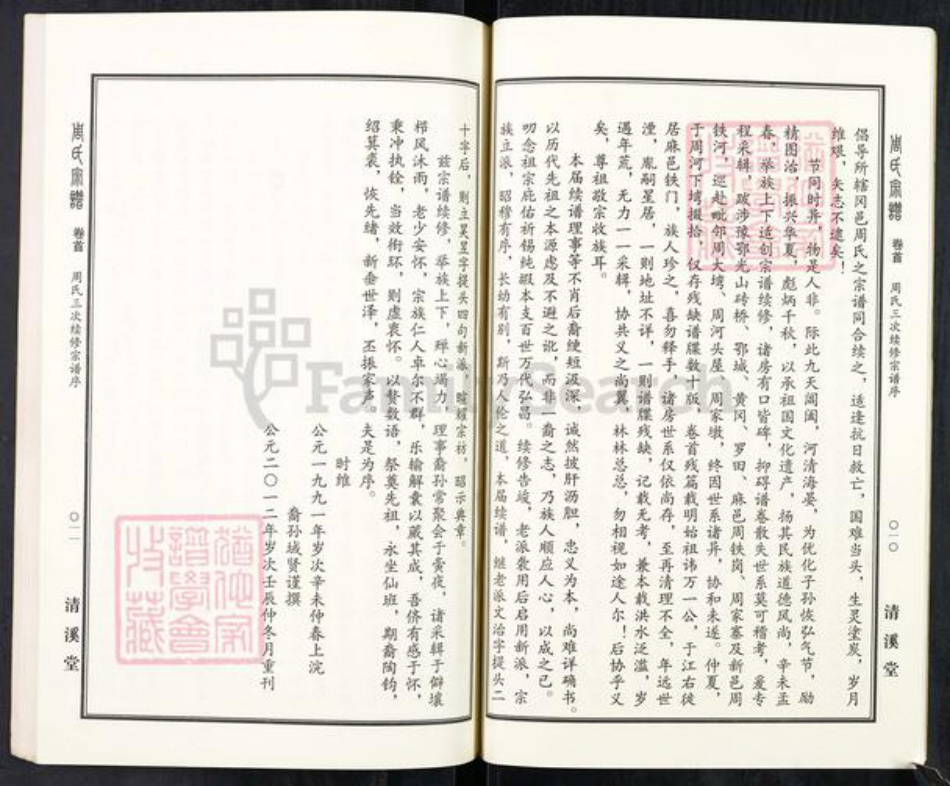 周氏宗谱
卷首
周氏三次续修宗谱序
〇一〇
清溪堂
倡导所辖冈邑周氏之宗谱同合续之，适逢抗日救亡，国难当头，生灵塗炭，岁月
维艰，矢志不逮矣！
节同时异，物是人非。际此九天阊阖，河清海晏，为优化子孙恢弘气节，励
精图治，振兴华夏，彪炳千秋，以承祖国文化遗产，扬其民族道德风尚，辛未孟
春，举族上下适创宗谱续修，诸房有口皆碑，抑碍谱卷散失世系莫可稽考，爰专
程采辑，跋涉豫鄂光山砖桥、鄂城、黄冈、罗田、麻邑周铁岗、周家寨及新邑周
铁河，巡赴毗邻周大塆、周河头屋、周家墩，终因世系诸异，协和未遂。仲夏，
于周河下塆掇拾，仅存残缺谱牒数十版，卷首残篇载明始祖讳万一公，于江右徙
居麻邑铁门，族人珍之，喜勿释手，诸房世系仅依尚存，至再清理不全，年远世
湮，胤嗣星居，一则地址不详，一则谱牒残缺，记载无考，兼本载洪水泛滥，岁
遇年荒，无力一一采辑，协共义之尚冀，林林总总，勿相视如途人尔！后协乎义
矣，尊祖敬宗收族耳。
本届续谱理事等不肖后裔绠短汲深，诚然披肝沥胆，忠义为本，尚难详确书。
以历代先祖之本源虑及不避之讹，而非一裔之志，乃族人顺应人心，以成之已。
叨念祖宗庇佑祈锡纯嘏本支百世万代弘昌。续修告竣，老派衾用后启用新派，宗
族立派，昭穆有序，长幼有别，斯乃人伦之道，本届续谱，继老派文治字提头二
十字后，则立昊呈字提头四句新派，暄耀宗祊，昭示典章。
兹宗谱续修，举族上下，殚心竭力，理事裔孙常聚会于霄夜，诸采辑于僻壤
栉风沐雨，老少安怀，宗族仁人卓尔不群，乐输解囊以蒇其成，吾侪有感于怀，
秉冲执铨，当效衔环，则虚衷怀。以赘数语，祭奠先祖，永坐仙班，期裔陶钧，
绍箕裘，恢先绪，新垂世泽，丕振家声。夫是为序。
时维
公元一九九一年岁次辛未仲春上浣
裔孙域贤谨撰
公元二〇一二年岁次壬辰仲冬月重刊
周氏宗谱
卷首
周氏三次续修宗谱序
〇一一
清溪堂
FamilySearch